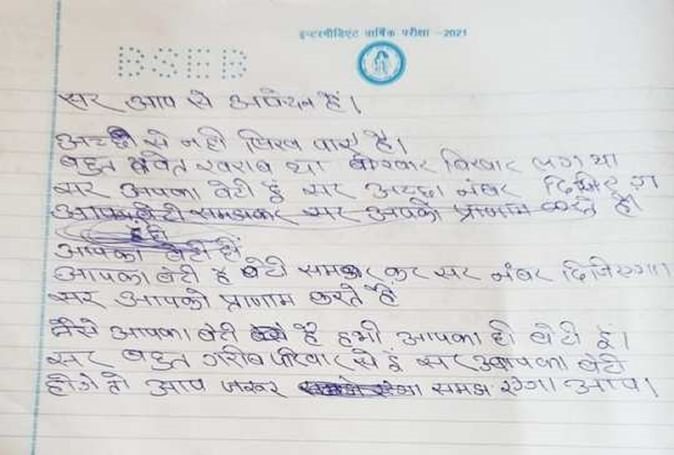 इन्टरमीडिएट वार्षिक परीक्षा - 2021
BSEB
सर आप से आवेदन हैं।
अच्छी से नही लिख पाएं है।
बहुत खराब था बोखार लग था
सर आपका बेटी हूँ सर अच्छा नंबर दिजिए गा
आपका बेटी समझकर सर आपको प्रणाम करते है।
आपका बेटी हैं
आपका बेटी है बेटी समझ कर सर नंबर दिजिएगा।
सर आपको प्राणाम करते हैं
जैसे आपका बेटी है हमी आपका ही बेटी हूँ।
सर बहुत गरीब परिवार से हूं सर आपका बेटी
होगे तो आप जरूर समझ आप।